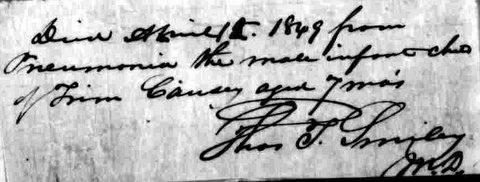 Died April 12. 1849 from
Pneumonia the male infant
of Causey aged 7 mos
Thos T. Smiley
M.D.